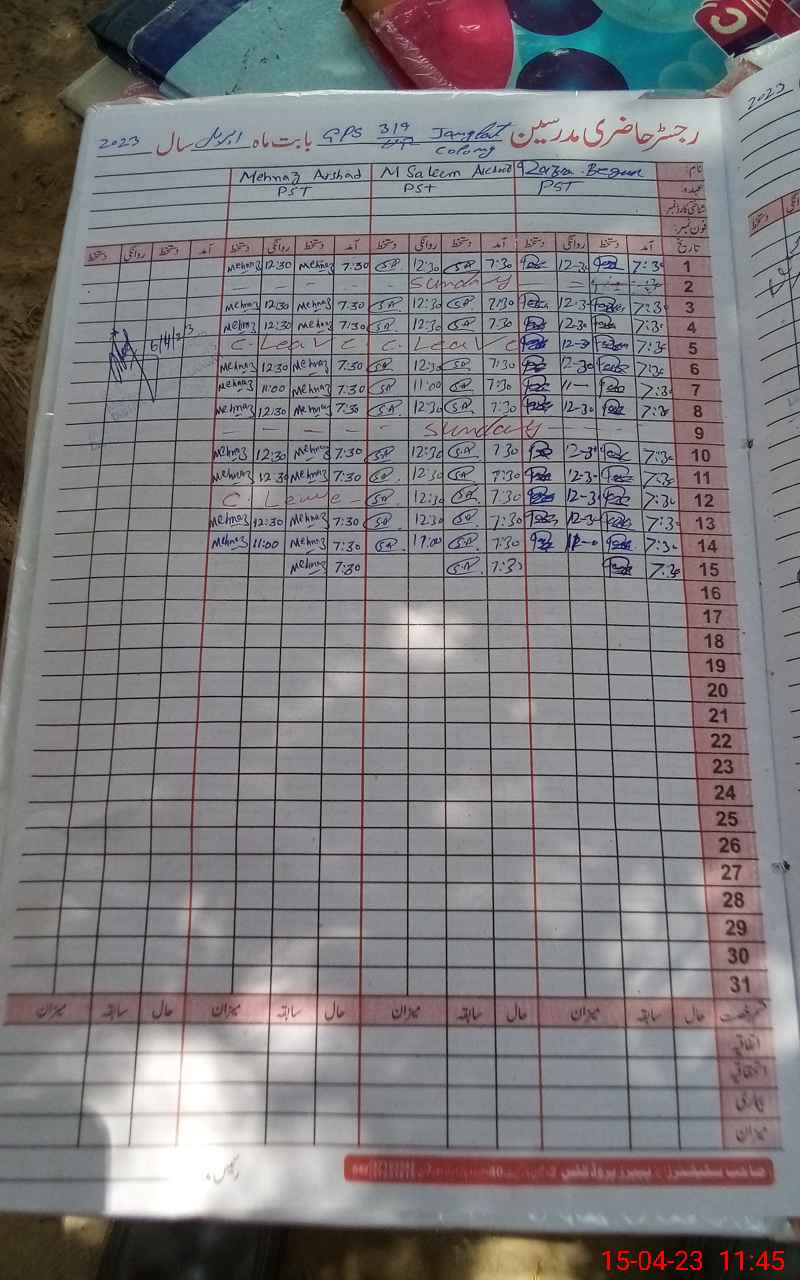 رجسٹر حاضری مدرسین بابت ماہ اپریل سال 2023
GPS 319 Janglat Colony
نام: Razia Begum M Saleem Arshad Mehnaz Arshad
عہدہ: PST PST PST
شناختی کارڈ نمبر
فون نمبر:
تاریخ آمد دستخط روانگی دستخط آمد دستخط روانگی دستخط آمد دستخط روانگی دستخط آمد دستخط روانگی دستخط
1 7:30 12-30 7:30 SA 12:30 SA 7:30 Mehnaz 12:30 Mehnaz
2 Sunday
3 7:30 12-30 7:30 SA 12:30 SA 7:30 Mehnaz 12:30 Mehnaz
4 7:30 12-30 7:30 SA 12:30 SA 7:30 Mehnaz 12:30 Mehnaz
5 7:30 12-30 C. Leave C. Leave
6 7:30 12-30 7:30 SA 12:30 SA 7:30 Mehnaz 12:30 Mehnaz
7 7:30 11- 7:30 SA 11:00 SA 7:30 Mehnaz 11:00 Mehnaz
8 7:30 12-30 7:30 SA 12:30 SA 7:30 Mehnaz 12:30 Mehnaz
9 Sunday
10 7:30 12-30 7:30 SA 12:30 SA 7:30 Mehnaz 12:30 Mehnaz
11 7:30 12-30 7:30 SA 12:30 SA 7:30 Mehnaz 12:30 Mehnaz
12 7:30 12-30 7:30 SA 12:30 SA C. Leave
13 7:30 12-30 7:30 SA 12:30 SA 7:30 Mehnaz 12:30 Mehnaz
14 7:30 11-0 7:30 SA 11:00 SA 7:30 Mehnaz 11:00 Mehnaz
15 7:30 7:30 SA 7:30 Mehnaz
16
17
18
19
20
21
22
23
24
25
26
27
28
29
30
31
قسم رخصت حال سابقہ میزان حال سابقہ میزان حال سابقہ میزان حال سابقہ میزان
اتفاقیہ
استحقاقیہ
بیماری
میزان
2023
15-04-23 11:45